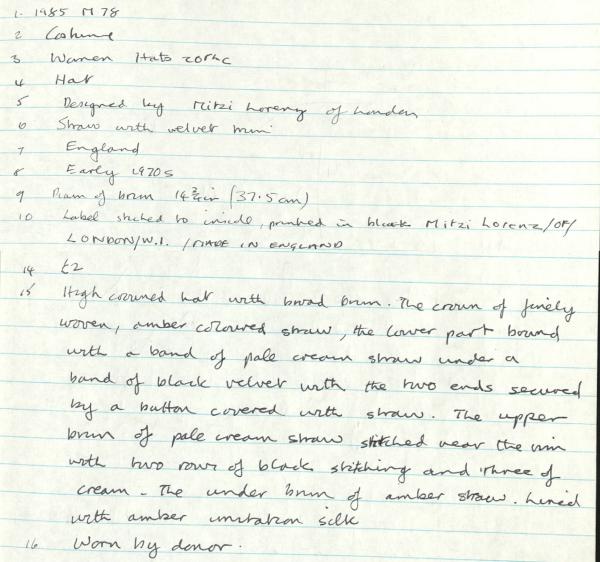 1. 1985 M 78
2 Costume
3 Women Hats 20thC
4 Hat
5 Designed by Mitzi Lorenz of London
6 Straw with velvet trim
7 England
8 Early 1970s
9 Diam of brim 14 3/4 in (37.5 cm)
10 Label stitched to inside, printed in black Mitzi Lorenz/OF/
LONDON/W.1. /MADE IN ENGLAND
14 £2
15 High crowned hat with broad brim. The crown of finely
woven, amber coloured straw, the lower part bound
with a band of pale cream straw under a
band of black velvet with the two ends secured
by a button covered with straw. The upper
brim of pale cream straw stitched near the rim
with two rows of black stitching and three of
cream - The under brim of amber straw. Lined
with amber imitation silk
16 Worn by donor.